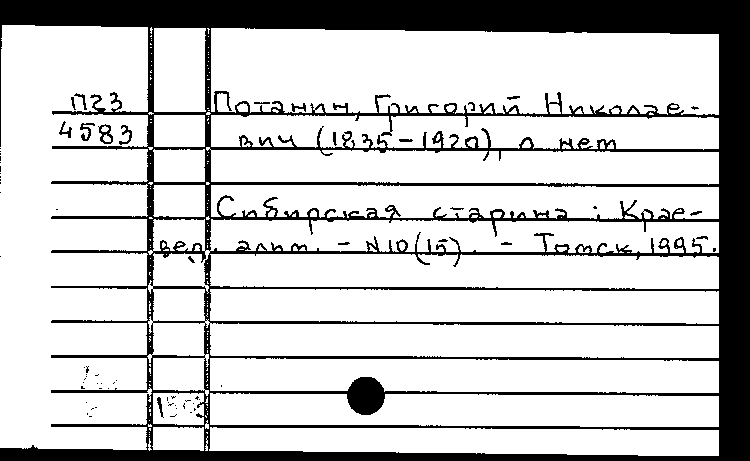 П23
4583
Потанин, Григорий Николае-
вич (1835-1920), о нем
Сибирская старина : Крае-
вед. альм. - N10(15). - Томск, 1995.